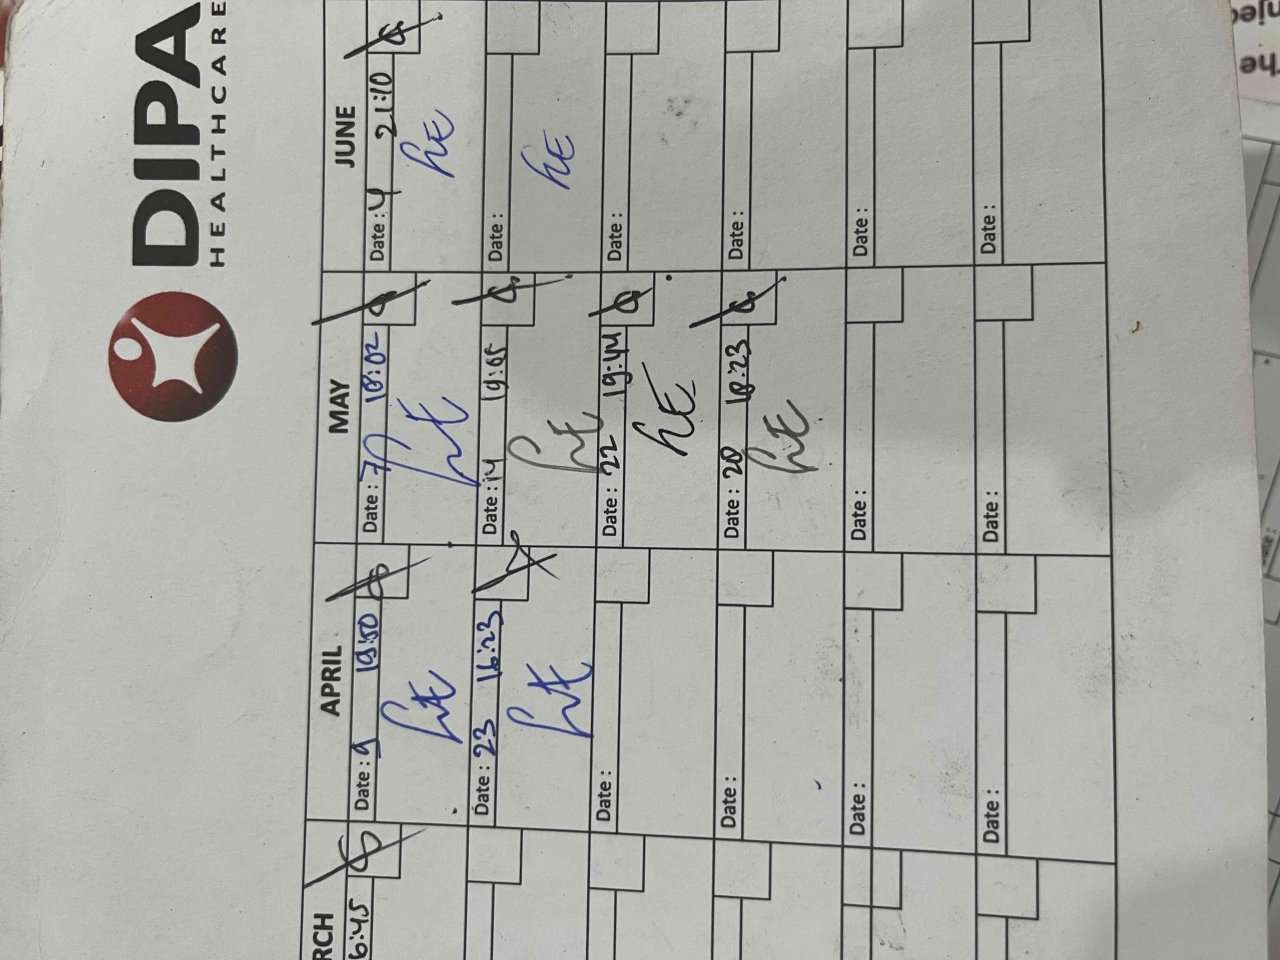 DIPA
HEALTHCARE
RCH
6:45
APRIL
Date : 9 19:50
Date : 23 16:23
Date :
Date :
Date :
Date :
MAY
Date : 7 18:02
Date : 14 19:05
Date : 22 19:44
Date : 28 18:23
Date :
Date :
JUNE
Date : 4 21:10
hE
Date :
hE
Date :
Date :
Date :
Date :